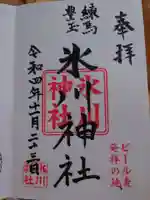 奉拝
ビール麦
発祥の地
氷川神社
氷川
神社
練馬
豊玉
令和四年十一月二十三日